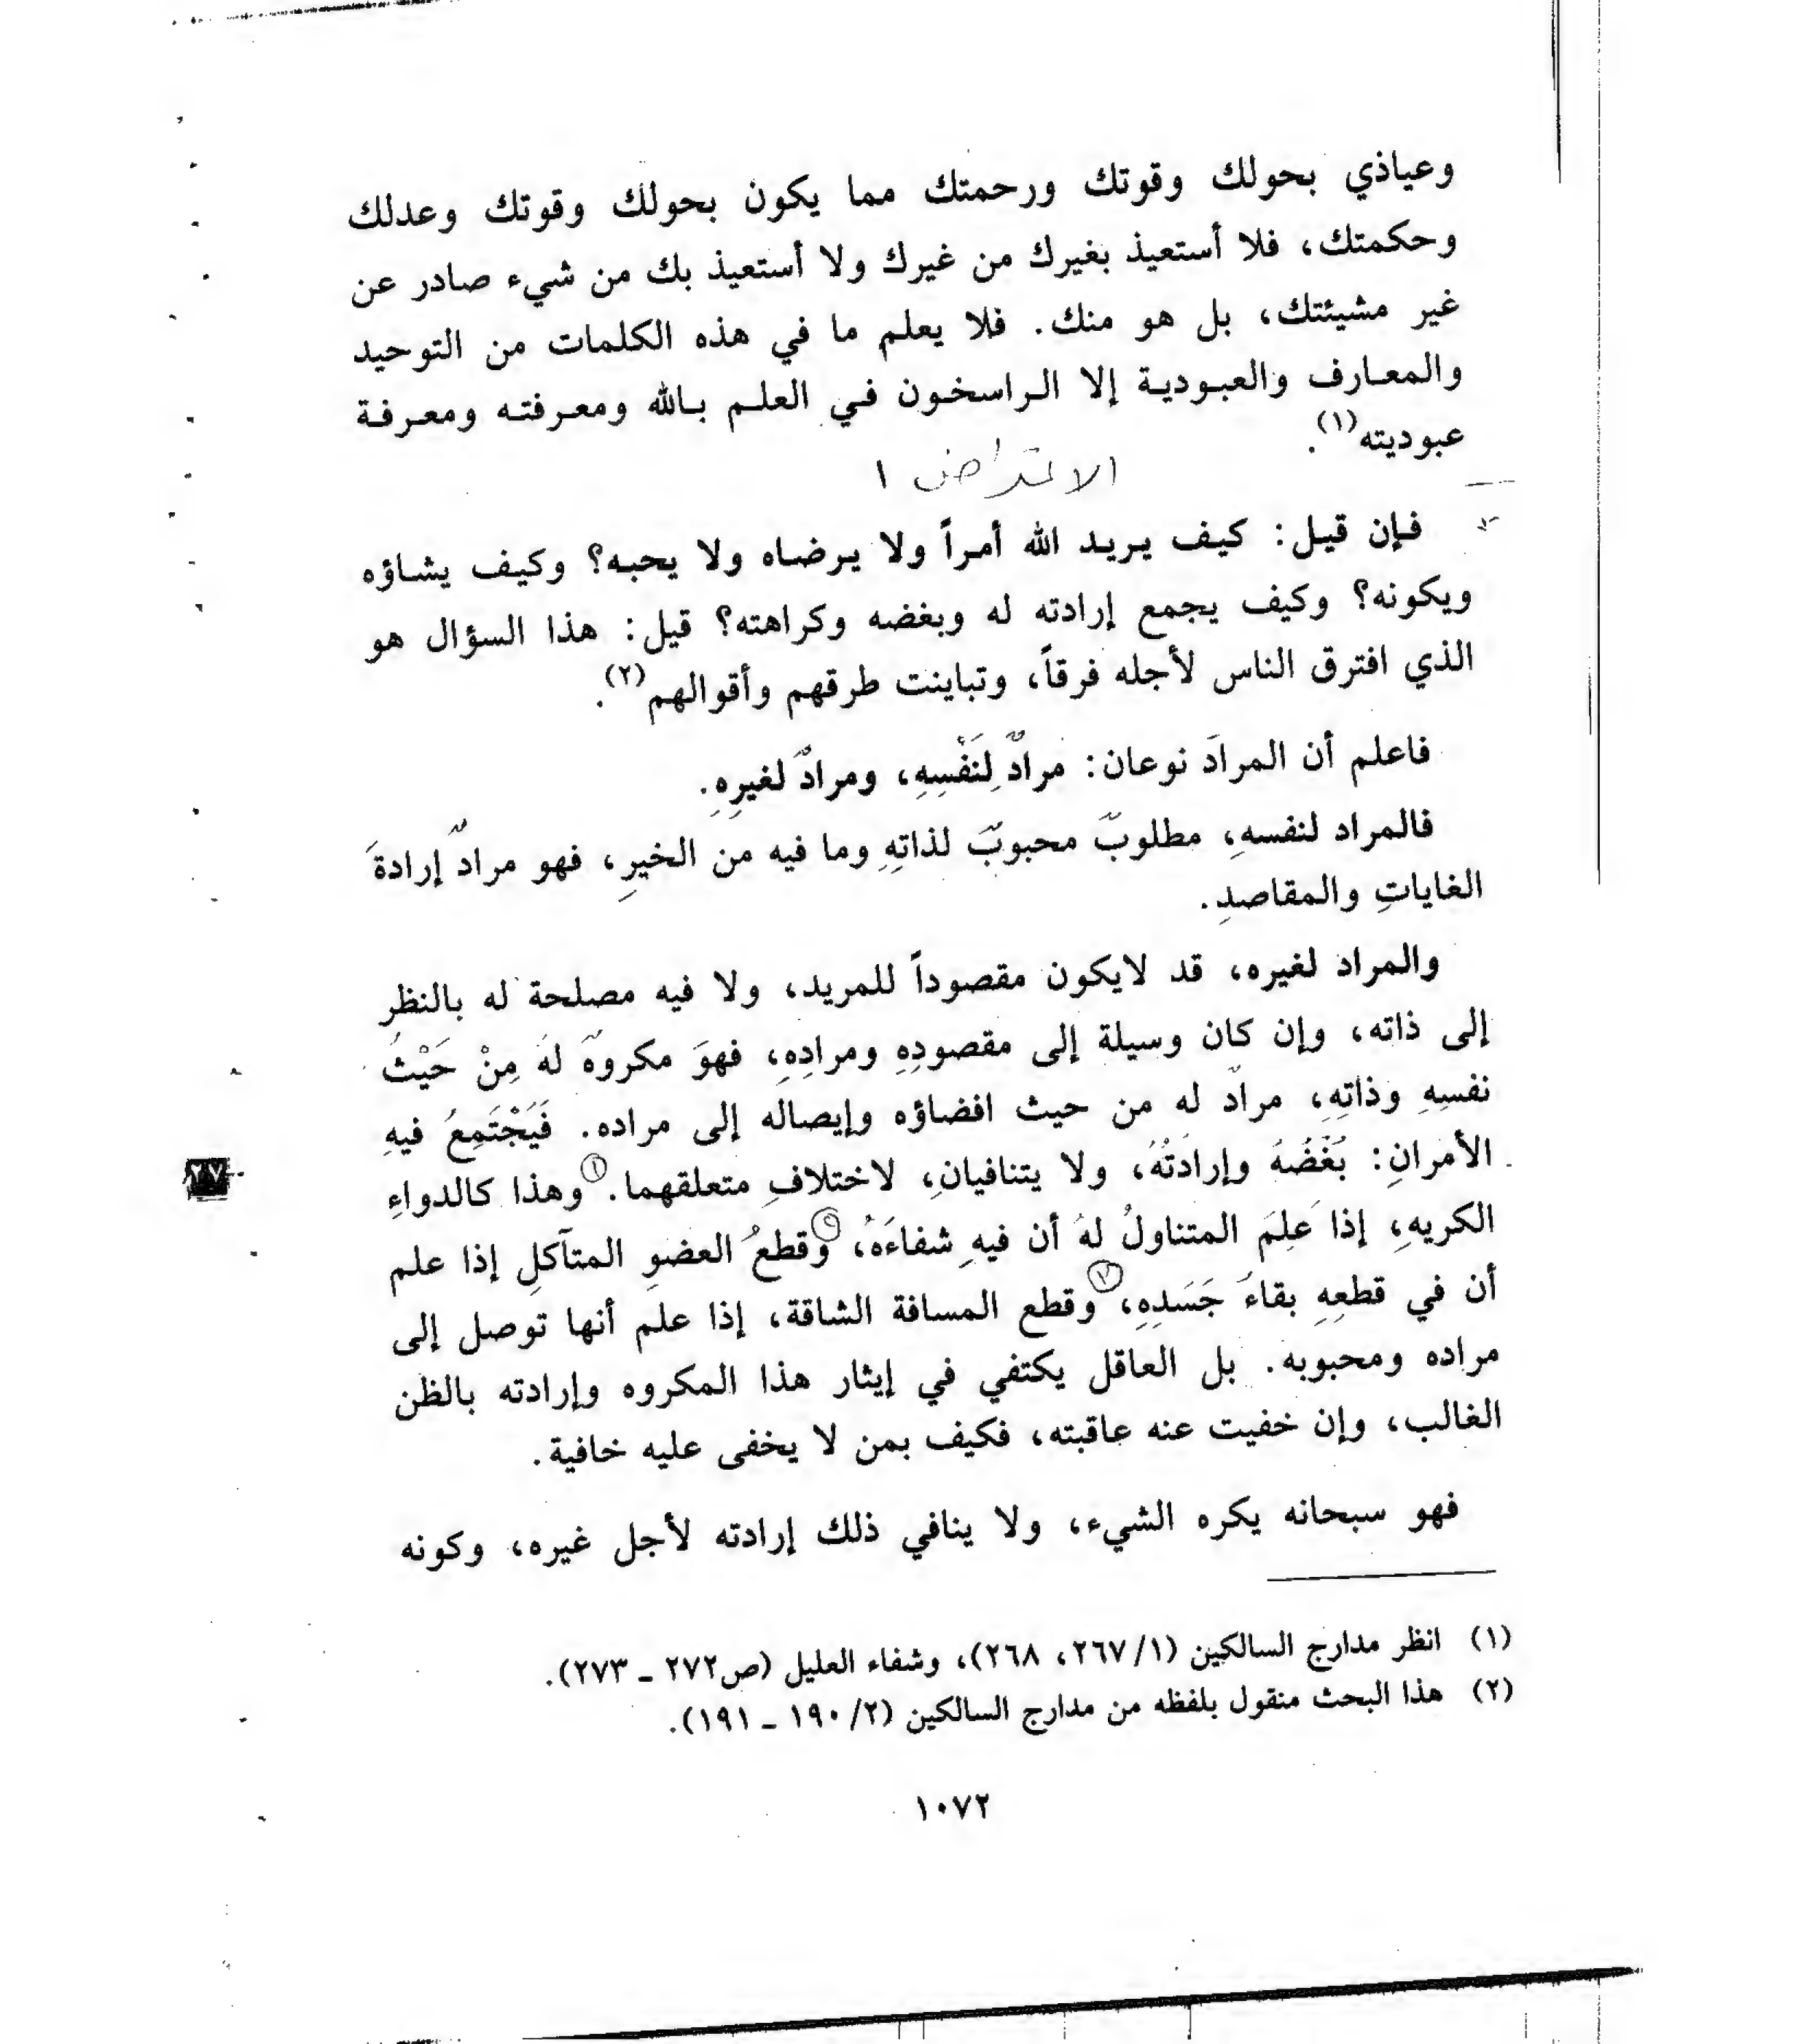 وعياذي بحولك وقوتك ورحمتك مما يكون بحولك وقوتك وعدلك
وحكمتك، فلا أستعيذ بغيرك من غيرك ولا أستعيذ بك من شيء صادر عن
غير مشيئتك، بل هو منك. فلا يعلم ما في هذه الكلمات من التوحيد
والمعارف والعبودية إلا الراسخون في العلم بالله ومعرفته ومعرفة
عبوديته(١).
فإن قيل: كيف يريد الله أمراً ولا يرضاه ولا يحبه؟ وكيف يشاؤه
ويكونه؟ وكيف يجمع إرادته له وبغضه وكراهته؟ قيل: هذا السؤال هو
الذي افترق الناس لأجله فرقاً، وتباينت طرقهم وأقوالهم(٢).
فاعلم أن المرادَ نوعان: مرادٌ لِنَفْسِهِ، ومرادٌ لغيرِهِ.
فالمراد لنفسهِ، مطلوبٌ محبوبٌ لذاتِهِ وما فيه من الخيرِ، فهو مرادٌ إرادةَ
الغاياتِ والمقاصدِ.
والمراد لغيره، قد لايكون مقصوداً للمريد، ولا فيه مصلحة له بالنظرِ
إلى ذاته، وإن كان وسيلة إلى مقصودِهِ ومرادِهِ، فهوَ مكروهٌ لهُ مِنْ حَيْثُ
نفسِهِ وذاتِهِ، مرادٌ له من حيث افضاؤه وإيصاله إلى مراده. فَيَجْتَمِعُ فيهِ
الأمرانِ: بُغْضُهُ وإرادَتُهُ، ولا يتنافيانِ، لاختلافِ متعلقهما. وهذا كالدواءِ
الكريهِ، إذا عَلِمَ المتناولُ لهُ أن فيهِ شفاءَهُ، وقطعُ العضوِ المتآكلِ إذا علم
أن في قطعِهِ بقاءَ جَسَدِهِ، وقطع المسافة الشاقة، إذا علم أنها توصل إلى
مراده ومحبوبه. بل العاقل يكتفي في إيثار هذا المكروه وإرادته بالظن
الغالب، وإن خفيت عنه عاقبته، فكيف بمن لا يخفى عليه خافية.
فهو سبحانه يكره الشيء، ولا ينافي ذلك إرادته لأجل غيره، وكونه
(١) انظر مدارج السالكين (١/ ٢٦٧، ٢٦٨)، وشفاء العليل (ص٢٧٢ ـ ٢٧٣).
(٢) هذا البحث منقول بلفظه من مدارج السالكين (٢/ ١٩٠ ـ ١٩١).
١٠٧٢